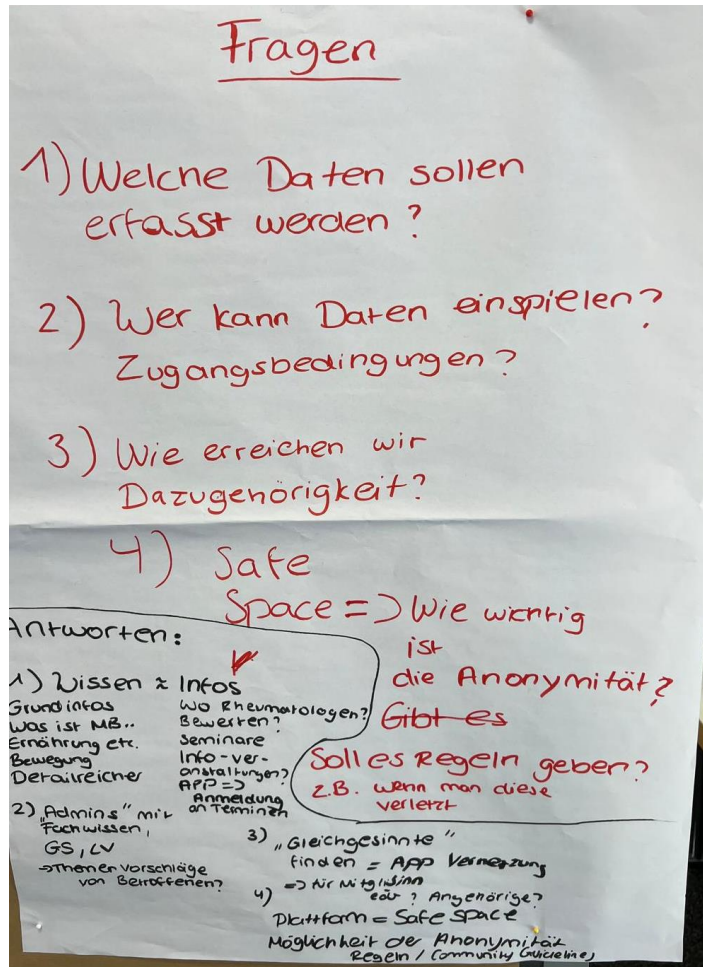 Fragen
1) Welche Daten sollen
erfasst werden?
2) Wer kann Daten einspielen?
Zugangsbedingungen?
3) Wie erreichen wir
Dazugehörigkeit?
4) Safe
Space => Wie wichtig
ist
die Anonymität?
Gibt es
Soll es Regeln geben?
z.B. wenn man diese
verletzt
Antworten:
1) Wissen & Infos
Grundinfos
Was ist MB..
Ernährung etc.
Bewegung
Detailreicher
Wo Rheumatologen?
Bewerten?
Seminare
Info-ver-
anstaltungen?
APP =>
Anmeldung
an Terminen
2) „Admins" mit
Fachwissen,
GS, LV
=> Themenvorschläge
von Betroffenen?
3) „Gleichgesinnte"
finden = APP Vernetzung
=> für
? Angehörige?
4)
Plattform = Safe Space
Möglichkeit der Anonymität
Regeln / Community Guidelines